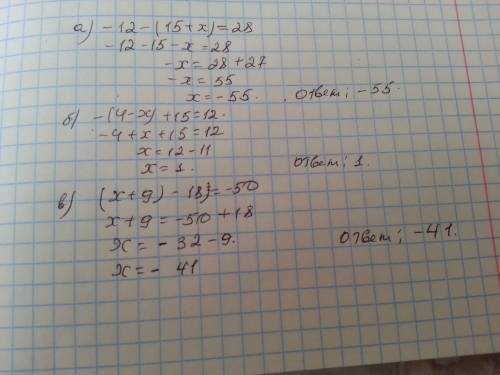 а) -12-(15+x)=28
-12-15-x=28
-x=28+27
-x=55
x=-55. Ответ; -55.
б) -(4-x)+15=12.
-4+x+15=12
x=12-11
x=1. Ответ; 1.
в) (x+9)-18=-50
x+9=-50+18
x=-32-9.
x=-41 Ответ; -41.